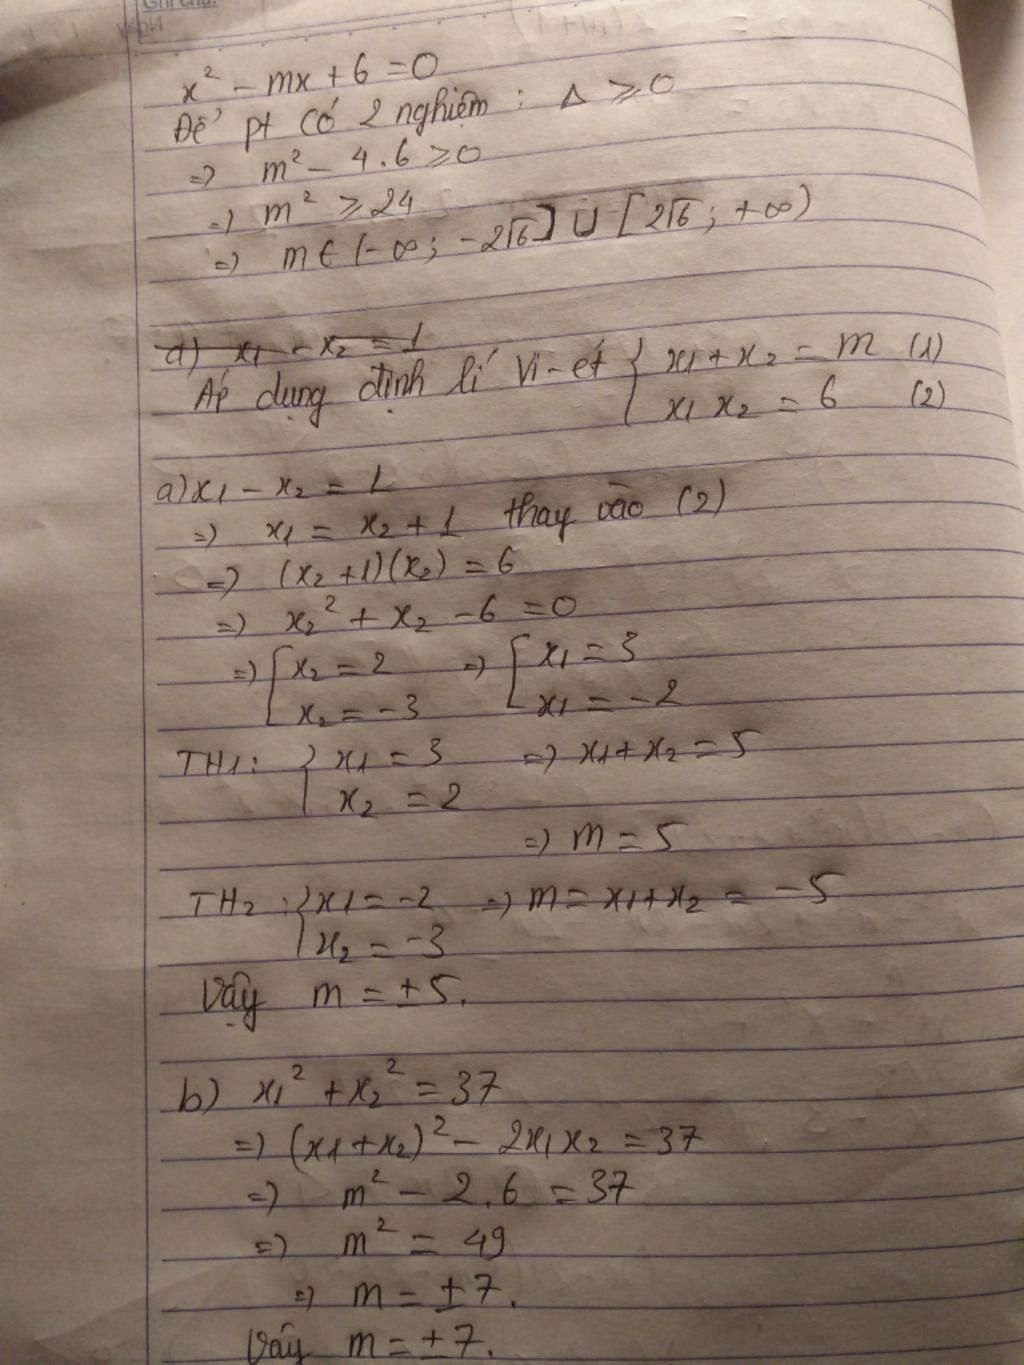 Ghi chú:
Ngày
x² - mx + 6 = 0
Để pt có 2 nghiệm : Δ ⩾ 0
=> m² - 4.6 ⩾ 0
=> m² ⩾ 24
=> m ∈ (-∞; -2√6] ∪ [2√6; +∞)
a) x₁ - x₂ = 1
Áp dụng định lí Vi-ét { x₁ + x₂ = m (1)
x₁ x₂ = 6 (2)
a) x₁ - x₂ = 1
=> x₁ = x₂ + 1 thay vào (2)
=> (x₂ + 1)(x₂) = 6
=> x₂² + x₂ - 6 = 0
=> [ x₂ = 2 => [ x₁ = 3
x₂ = -3 x₁ = -2
TH1: { x₁ = 3 => x₁ + x₂ = 5
x₂ = 2
=> m = 5
TH2: { x₁ = -2 => m = x₁ + x₂ = -5
x₂ = -3
Vậy m = ±5.
b) x₁² + x₂² = 37
=> (x₁ + x₂)² - 2x₁x₂ = 37
=> m² - 2.6 = 37
=> m² = 49
=> m = ±7.
Vậy m = ±7.